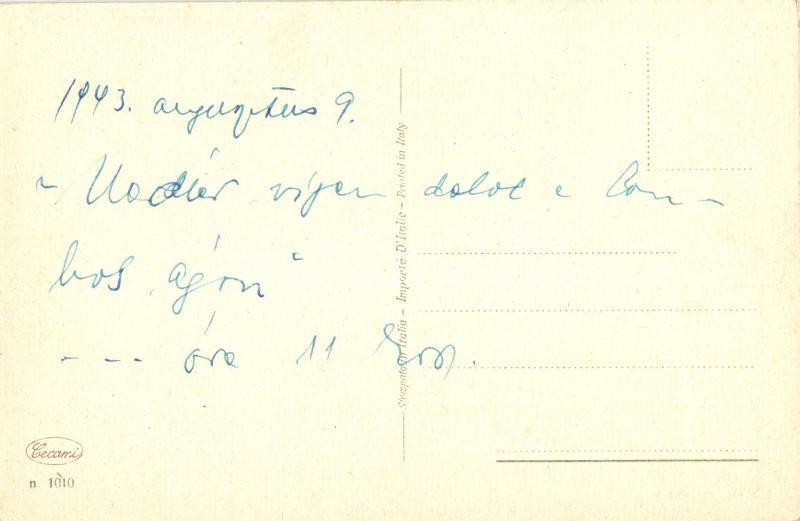 1943. augusztus 9.
" Madár vígan dalol a lom-
bos ágon "
- - - óra 11
Stampato in Italia - Importé D'Italie - Printed in Italy
Cecami
n 1010